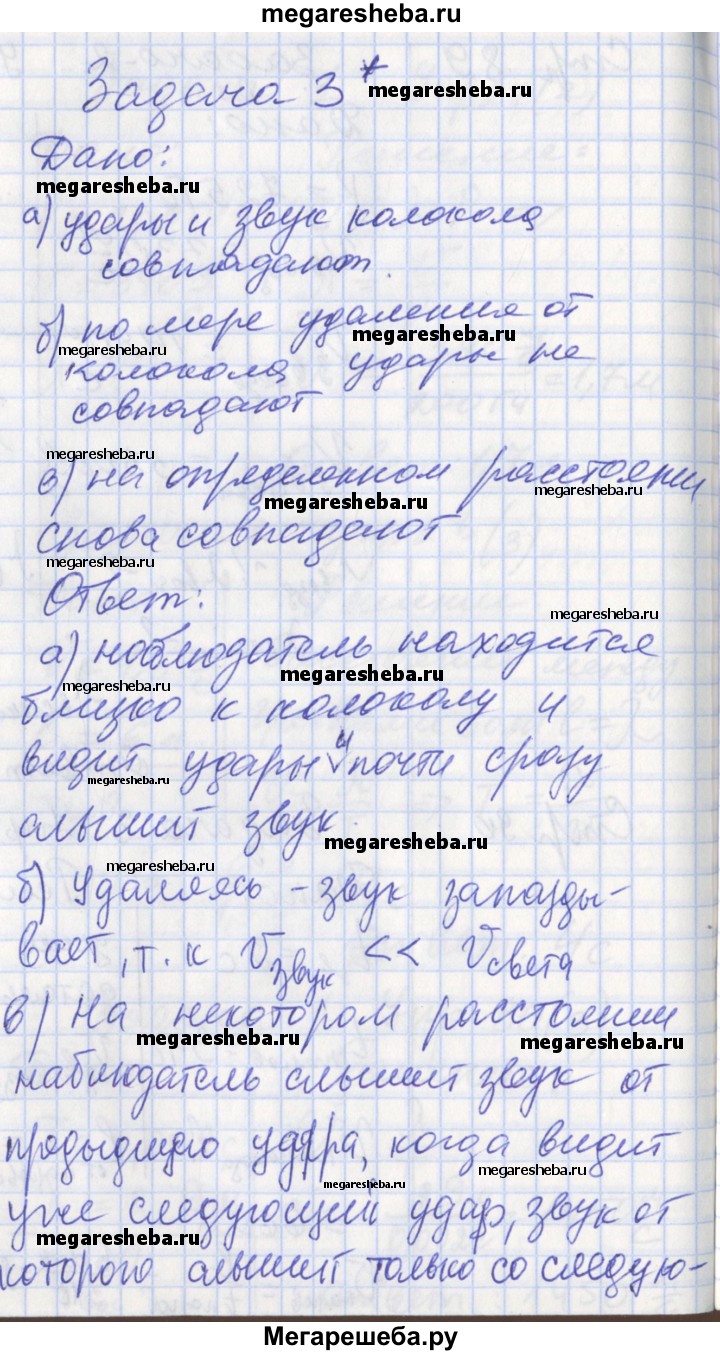 megaresheba.ru
Задача 3*
megaresheba.ru
Дано:
megaresheba.ru
а) удары и звук колокола
совпадают.
б) по мере удаления от
megaresheba.ru
megaresheba.ru
колокола удары не
совпадают
megaresheba.ru
в) на определенном расстоянии
megaresheba.ru
megaresheba.ru
снова совпадают
Ответ:
megaresheba.ru
а) наблюдатель находится
megaresheba.ru
megaresheba.ru
близко к колоколу и
видит удары и почти сразу
megaresheba.ru
слышит звук.
megaresheba.ru
megaresheba.ru
б) Удаляясь - звук запазды-
вает, т. к Vзвук << Vсвета
в) На некотором расстоянии
megaresheba.ru
megaresheba.ru
наблюдатель слышит звук от
предыдщего удара, когда видит
megaresheba.ru
megaresheba.ru
уже следующий удар, звук от
megaresheba.ru
которого слышит только со следую-
Мегарешеба.ру